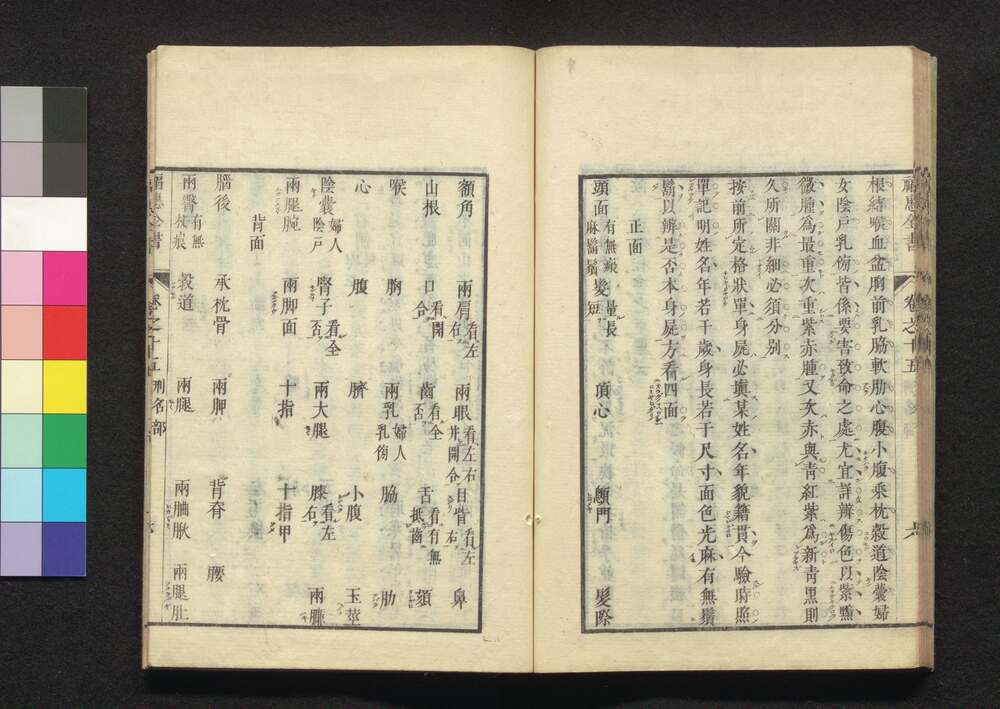 福惠全書 卷之十五
根緒喉血盆胸前乳脇軟肋心腹小腹乘枕穀道陰囊婦
女陰戸乳傍皆係要害致命之處尤宜詳辨傷色以紫黯
微腫爲最重次重紫赤腫又次赤與靑紅紫爲新靑黑則
久所關非細必須分别
按前所定格狀單身屍必與某姓名年貌籍貫今驗時照
單記明姓名年若干歲身長若干尺寸面色光麻有無鬚
以辨是否本身屍方看四面
正面
頭面 有無瘢 麻鬍鬚 髮 量長短 頂心 顖門 髮際
額角 兩肩 看左右 兩眼 看左右并開合 目眥 看左右 鼻
山根 口 看開合 齒 看全否 舌 看有無抵齒 頦
喉 胸 兩乳 婦人乳傍 脇 肋
心 腹 臍 小腹 玉莖
陰囊 婦人陰戸 腎子 看全否 兩大腿 膝 看左右 兩臁
兩腿腕 兩脚面 十指 十指甲
背面
腦後 承枕骨 兩胛 背脊 腰
兩臀 有無杖痕 穀道 兩腿 兩䐐䐐 兩腿肚
福惠全書 卷之十五 刑名部